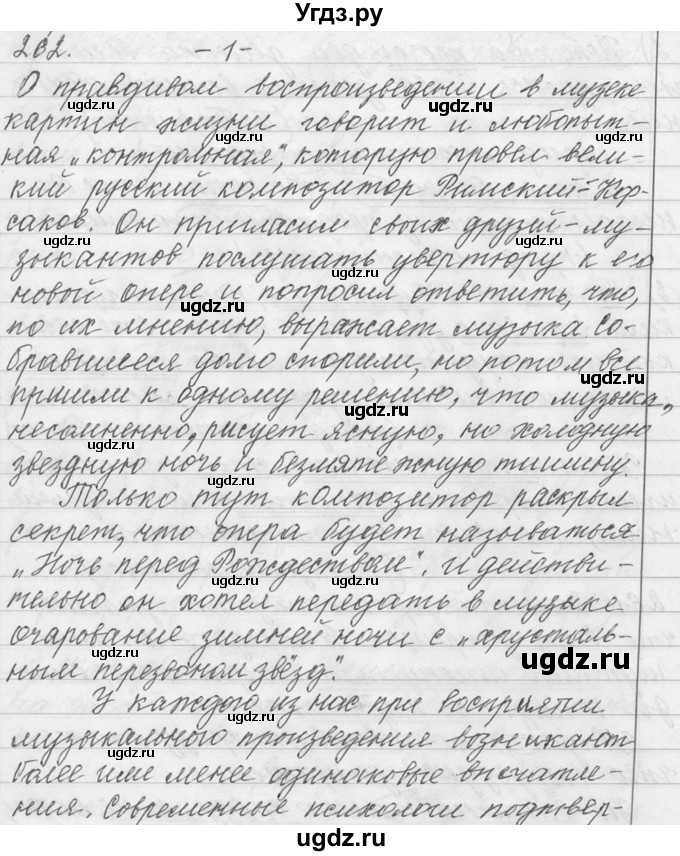 Угдз.ру
262. - 1 -
О правдивом воспроизведении в музыке
картин жизни говорит и любопыт-
ная „контрольная", которую провёл вели-
кий русский композитор Римский-Кор-
саков. Он пригласил своих друзей-му-
зыкантов послушать увертюру к его
новой опере и попросил ответить, что,
по их мнению, выражает музыка. Со-
бравшиеся долго спорили, но потом все
пришли к одному решению, что музыка,
несомненно, рисует ясную, но холодную
звездную ночь и безмятежную тишину.
Только тут композитор раскрыл
секрет, что опера будет называться
„Ночь перед Рождеством". И действи-
тельно он хотел передать в музыке
очарование зимней ночи с „хрусталь-
ным перезвоном звёзд".
У каждого из нас при восприятии
музыкального произведения возникают
более или менее одинаковые впечатле-
ния. Современные психологи подтвер-
ugdz.ru